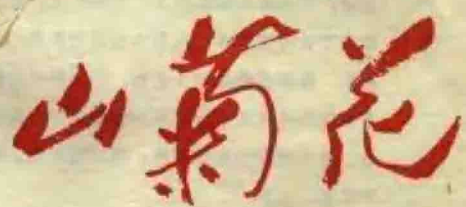 山菊花